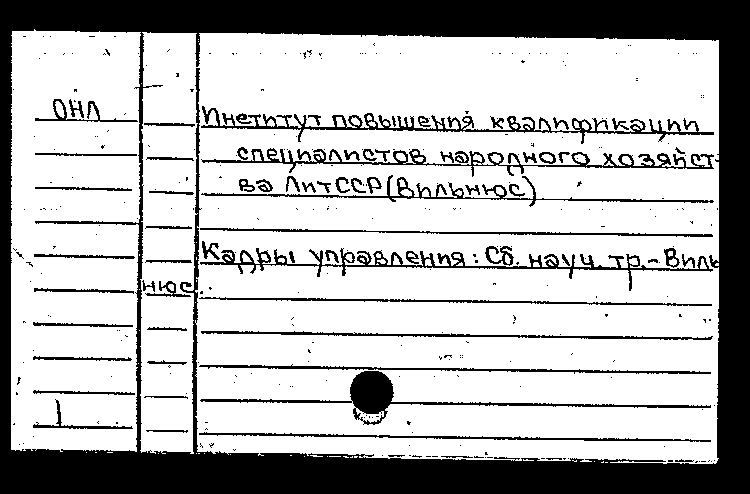 ОНЛ
Институт повышения квалификации
специалистов народного хозяйст-
ва ЛитССР (Вильнюс)
Кадры управления: Сб. науч. тр.-Виль
нюс.
1